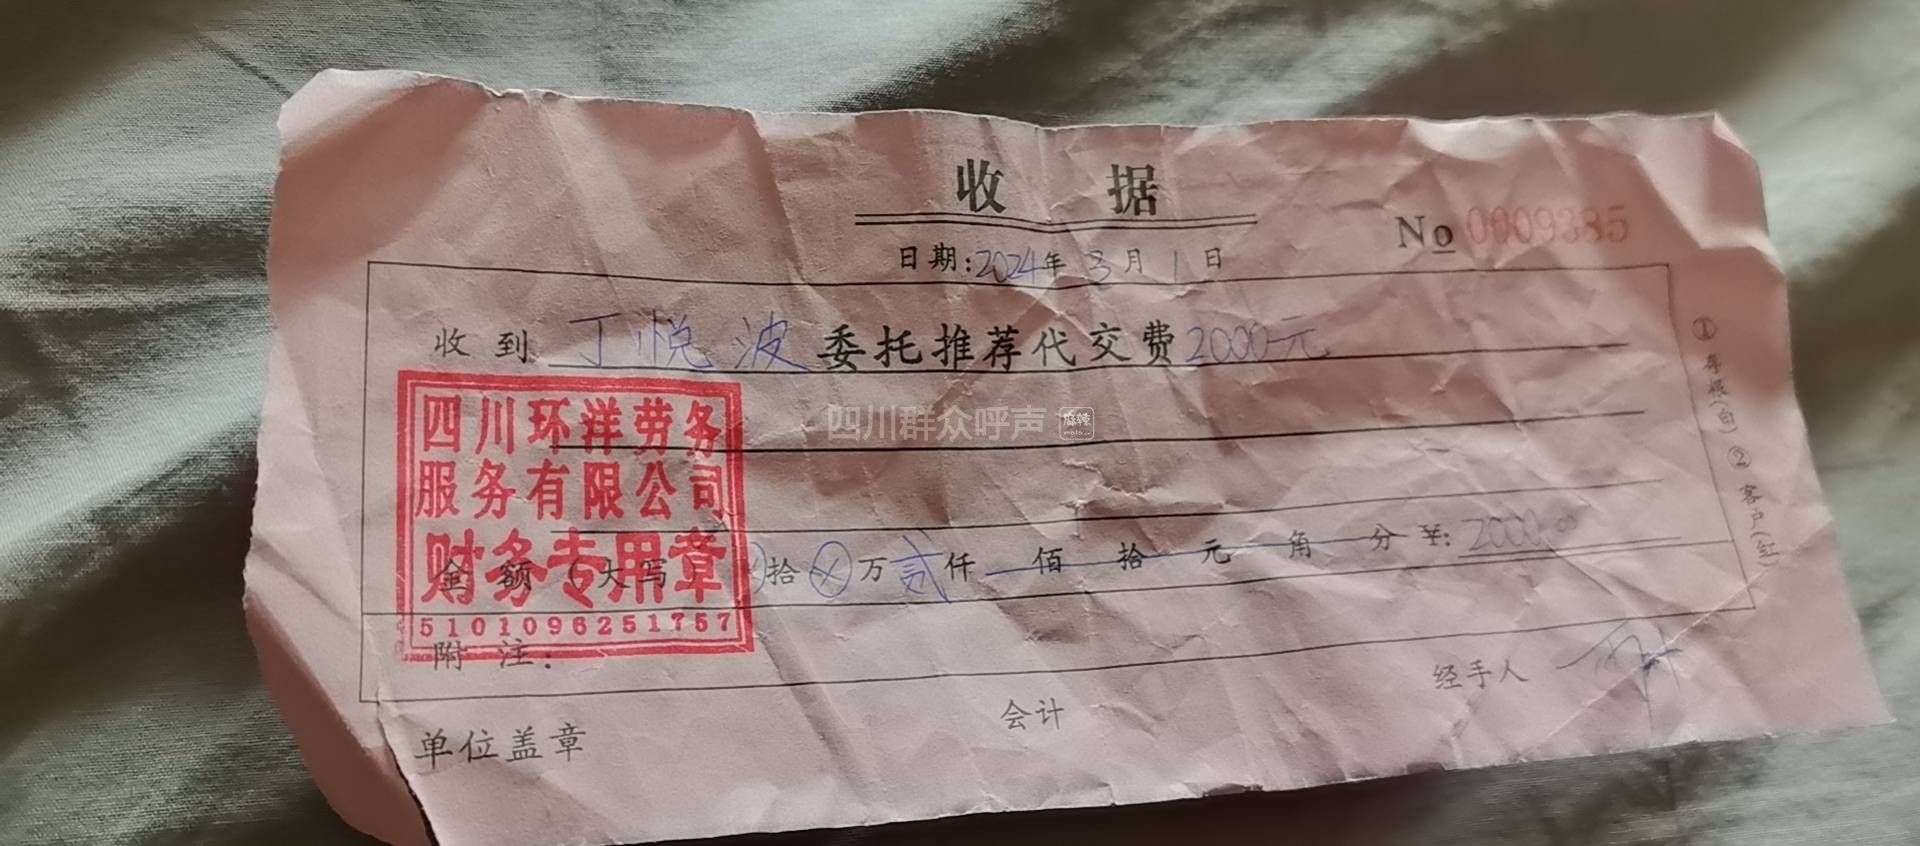 收 据
No 0009385
日期:2024年3月1日
收到 丁悦波 委托推荐代交费 2000元
四川群众呼声 麻辣
四川环洋劳务
服务有限公司
财务专用章
金 额 (大写) 拾 万 贰 仟 佰 拾 元 角 分 ¥: 2000.00
5101096251757
附 注:
经手人
会计
单位盖章
①存根(白) ②客户(红)